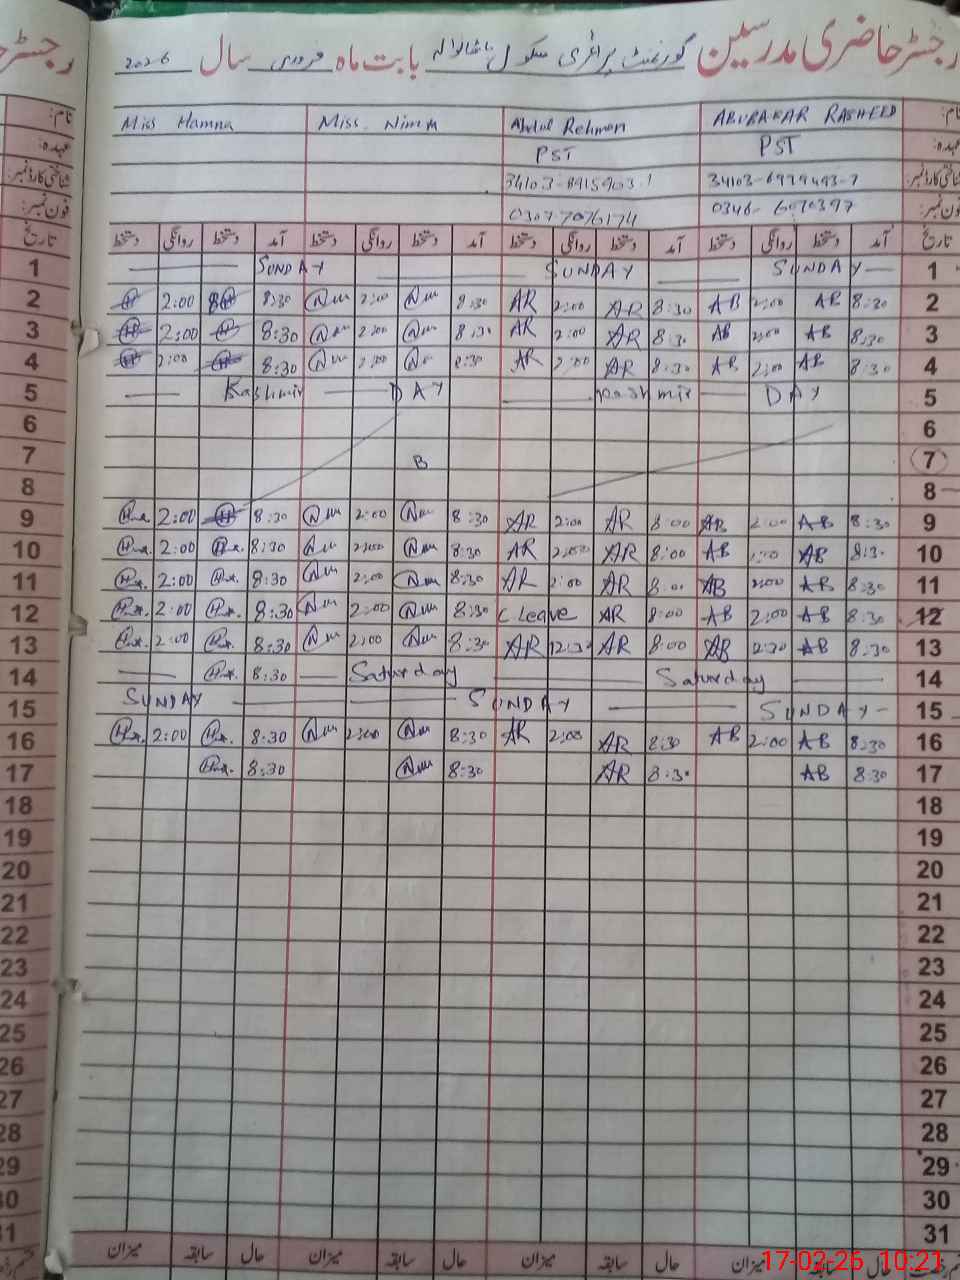 رجسٹر حاضری مدرسین گورنمنٹ پرائمری سکول بابت ماہ فروری سال 2026
نام: ABUBAKAR RASHEED Abdul Rehman Miss. Nimra Miss Hamna
عہدہ: PST PST
شناختی کارڈ نمبر:
فون نمبر: 0307-7076174
تاریخ آمد دستخط روانگی دستخط آمد دستخط روانگی دستخط آمد دستخط روانگی دستخط آمد دستخط روانگی دستخط
1 SUNDAY SUNDAY SUNDAY 1
2 2:00 8:30 2:00 8:30 AR 2:00 AR 8:30 AB 2:00 AB 8:30 2
3 2:00 8:30 2:00 8:30 AR 2:00 AR 8:30 AB 2:00 AB 8:30 3
4 2:00 8:30 2:00 8:30 AR 2:00 AR 8:30 AB 2:00 AB 8:30 4
5 Kashmir DAY Kashmir DAY 5
6 6
7 B 7
8 8
9 2:00 8:30 2:00 8:30 AR 2:00 AR 8:00 AB 2:00 AB 8:30 9
10 2:00 8:30 2:00 8:30 AR 2:00 AR 8:00 AB AB 8:30 10
11 2:00 8:30 2:00 8:30 AR 2:00 AR 8:00 AB 2:00 AB 8:30 11
12 2:00 8:30 2:00 8:30 C Leave AR 8:00 AB 2:00 AB 8:30 12
13 2:00 8:30 2:00 8:30 AR 12:30 AR 8:00 AB AB 8:30 13
14 8:30 Saturday Saturday 14
15 SUNDAY SUNDAY SUNDAY 15
16 2:00 8:30 2:00 8:30 AR 2:00 AR 8:30 AB 2:00 AB 8:30 16
17 8:30 8:30 AR 8:30 AB 8:30 17
18 18
19 19
20 20
21 21
22 22
23 23
24 24
25 25
26 26
27 27
28 28
29 29
30 30
31 31
حال سابقہ میزان حال سابقہ میزان حال سابقہ میزان حال سابقہ میزان
17-02-26 10:21